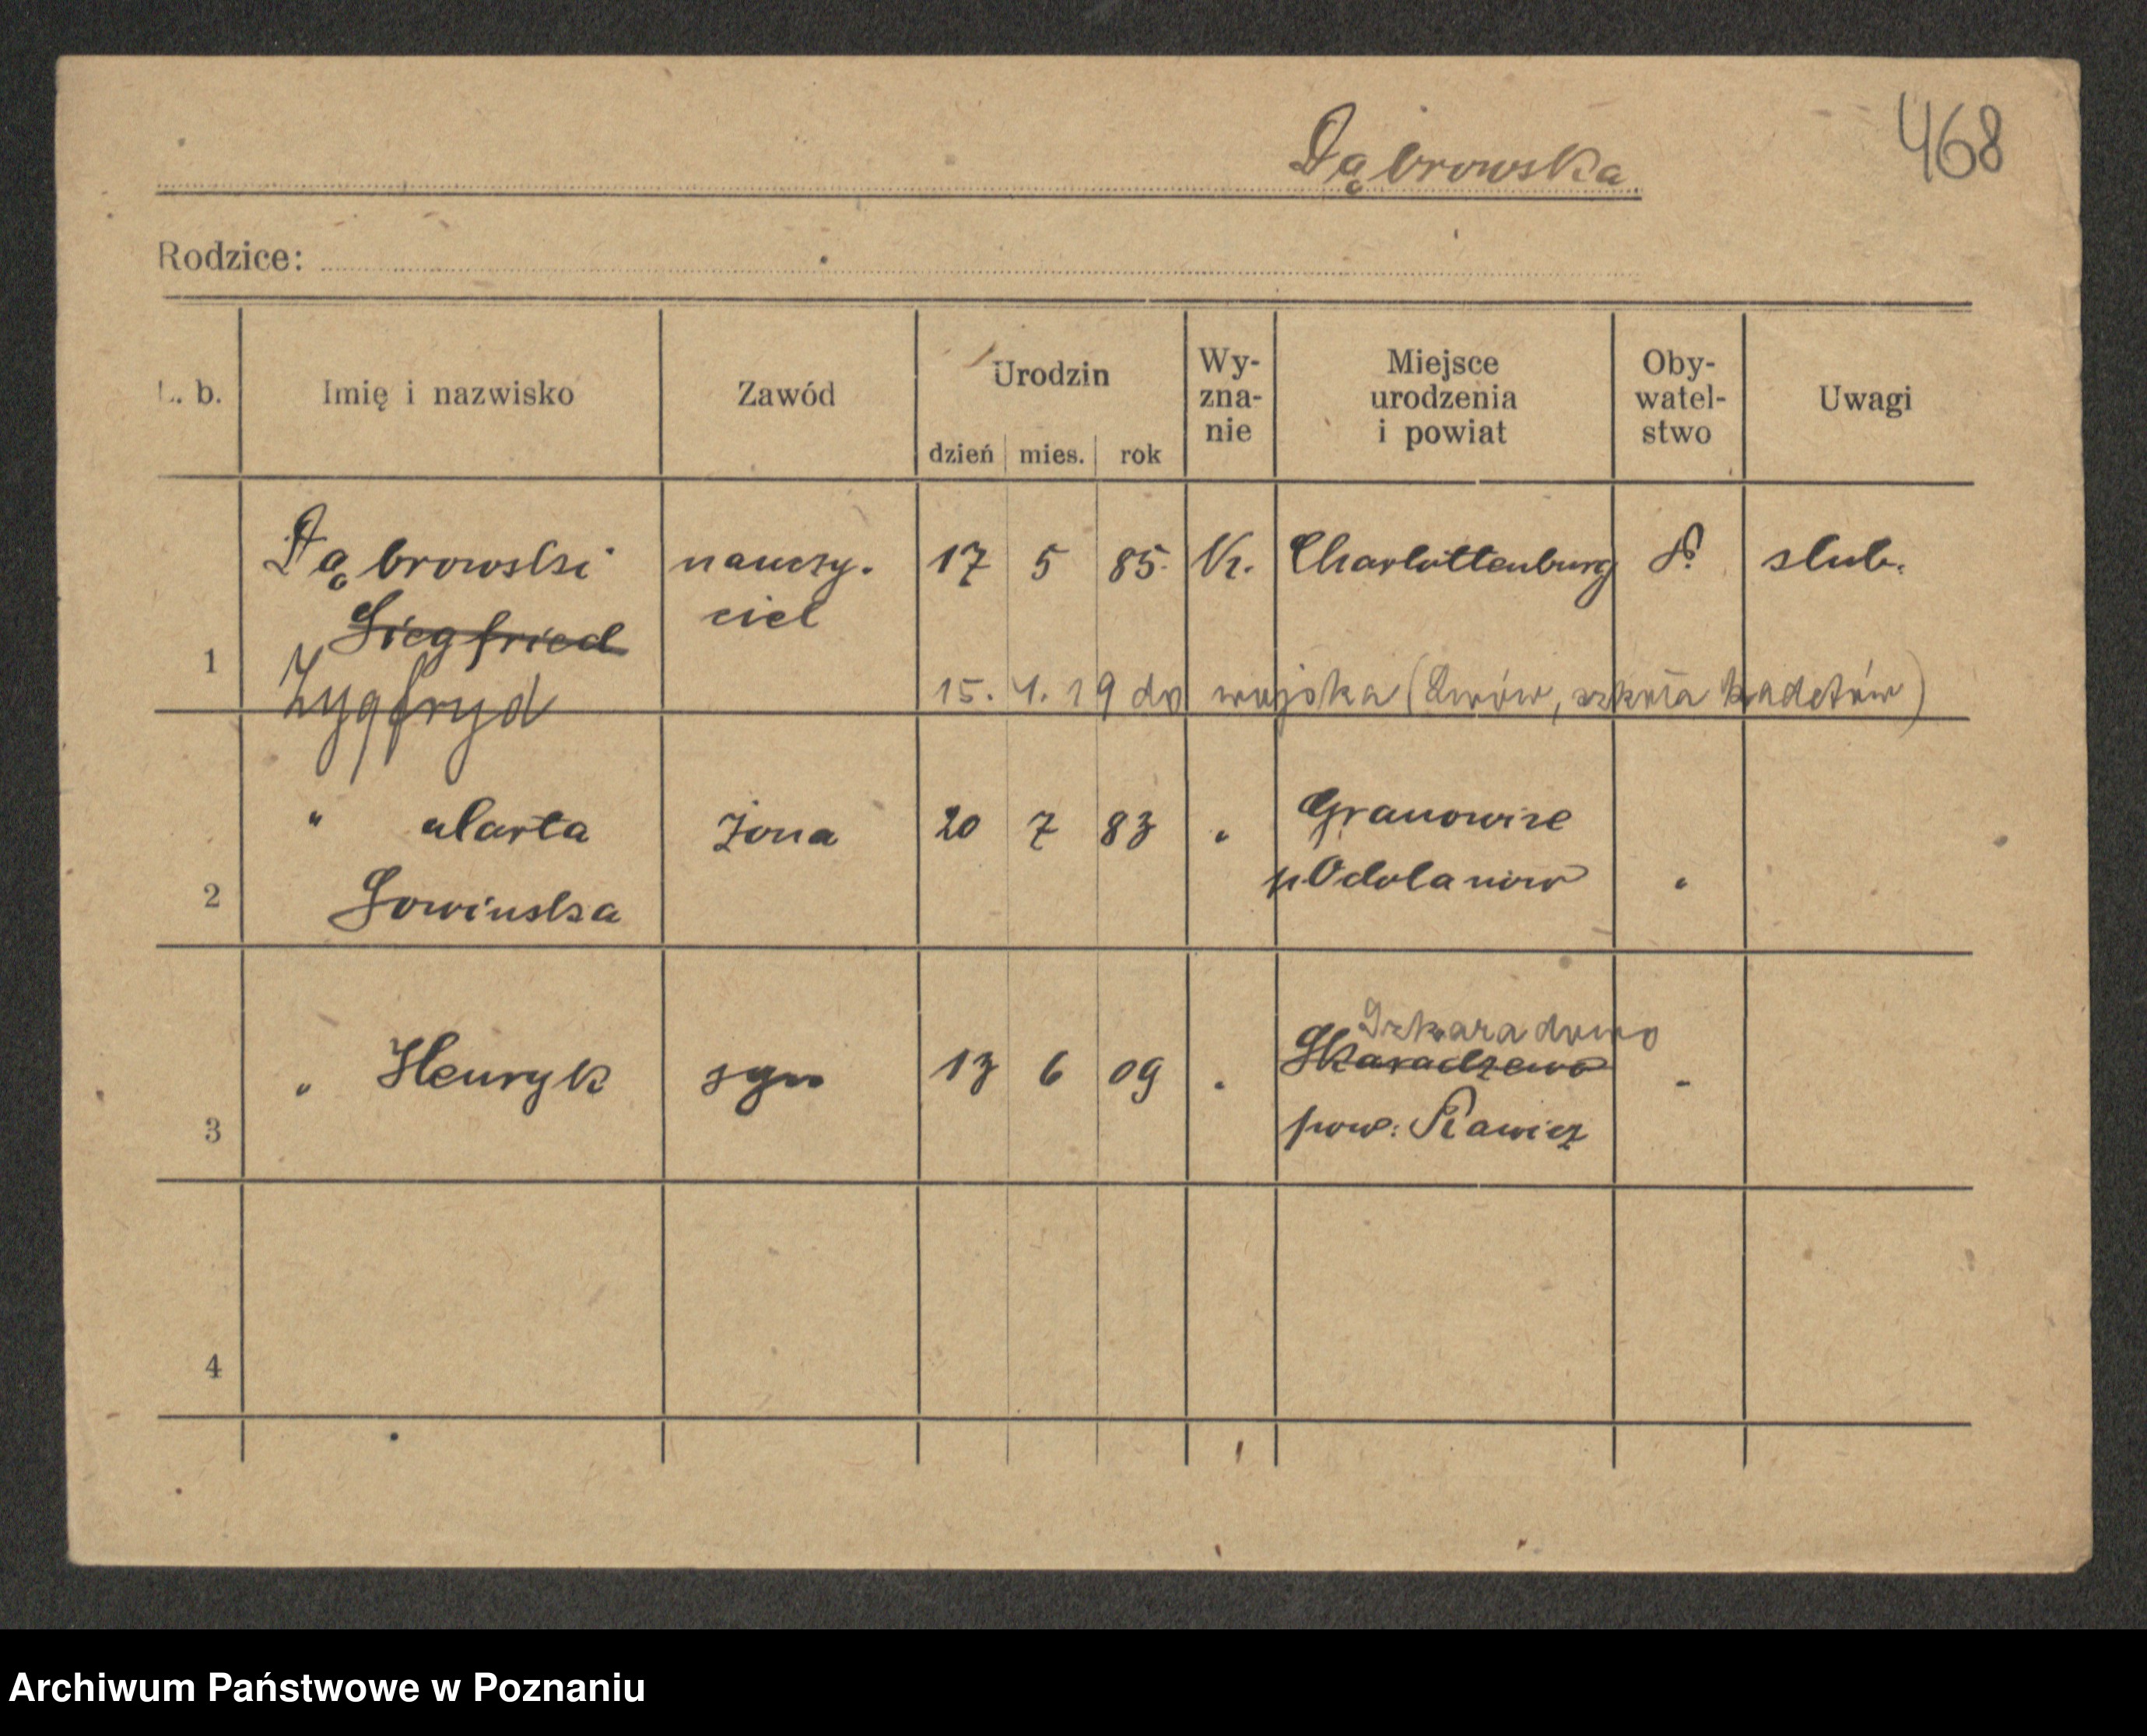 468
Dąbrowska
Rodzice:
L. b.
Imię i nazwisko
Zawód
Urodzin
dzień mies. rok
Wy-
zna-
nie
Miejsce
urodzenia
i powiat
Oby-
watel-
stwo
Uwagi
1
Dąbrowski
Siegfried
Zygfryd
nauczy.
ciel
17 5 85. K. Charlottenburg P. slub.
15. 4. 19 do wojska (Lwów, szkoła kadetów)
2
" Marta
Sowinska
żona
20 7 83 "
Granowize
p. Odolanów "
3
" Henryk
syn
13 6 09 "
Szkaradowo
Skaradzewo "
pow. Rawicz
4
Archiwum Państwowe w Poznaniu